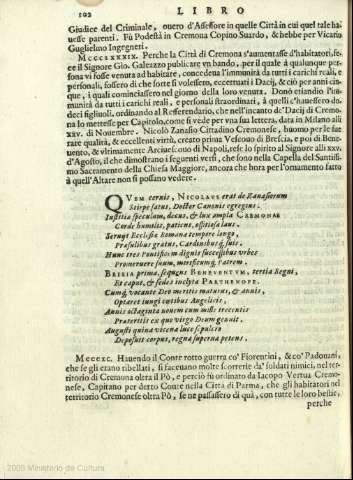 102 LIBRO
Giudice del Criminale, ouero d'Assessore in quelle Città in cui quel tale ha-
uesse parenti. Fù Podestà in Cremona Copino Suardo, & hebbe per Vicario
Guglielmo Ingegneri.
MCCCLXXXIX. Perche la Città di Cremona s'aumentasse d'habitatori, fe-
ce il Signore Gio. Galeazzo publicare vn bando, per il quale à qualunque per-
sona vi fosse venuta ad habitare, concedeua l'immunità da tutti i carichi reali, e
personali, fossero di che forte si volessero, eccettuati i Dacij, & ciò per anni cin-
que, i quali cominciassero nel giorno della loro venuta. Donò etiandio l'im-
munità da tutti i carichi reali, e personali straordinari, à quelli c'hauessero do-
deci figliuoli, ordinando al Referendario, che nell'incanto de' Dacij di Cremo-
na lo mettesse per Capitolo, come si vede per vna sua lettera, data in Milano alli
xxv. di Nouembre. Nicolò Zanasio Cittadino Cremonese, huomo per le sue
rare qualità, & eccellenti virtù, creato prima Vescouo di Brescia, e poi di Bene-
uento, & vltimamente Arciuescouo di Napoli, rese lo spirito al Signore alli xxv.
d'Agosto, il che dimostrano i seguenti versi, che sono nella Capella del Santissi-
mo Sacramento della Chiesa Maggiore, ancora che hora per l'ornamento fatto
à quell'Altare non si possano vedere.
QVEM cernis, NICOLAVS erat de Zanasiorum
Stirpe satus, Doctor Canonis egregius,
Iustitia speculum, decus, & lux ampla CREMONAE
Corde humilis, patiens, ossitiosa laus.
Seruyt Ecclesia Romana tempore longo,
Prasulibus gratus, Cardinibusq; suis.
Hunc tres Pontifices dignis successibus vrbes
Promeruere suum, mirificumq; Patrem.
BRIXIA prima, sequens BENEVENTVM, tertia Regni,
Et caput, & sedes inclyta PARTHENOPE.
Cumq; vocante Deo meritis maturus, & annis,
Optaret iungi cœtibus Angelicis,
Annis octaginta nouem cum mille trecentis
Prateritis ex quo virgo Deum genuit.
Augusti quina vicena luce sepulcro
Deposuit corpus, regna superna petens.
MCCCXC. Hauendo il Conte rotto guerra co' Fiorentini, & co' Padouani,
che se gli erano ribellati, si faceuano molte scorrerie da' soldati nimici, nel ter-
ritorio di Cremona oltra il Pò, e perciò fù ordinato da Iacopo Vertua Cremo-
nese, Capitano per detto Conte nella Città di Parma, che gli habitatori nel
territorio Cremonese oltra Pò, se ne passassero di quà, con tutte le loro bestie,
perche
2009 Ministerio de Cultura